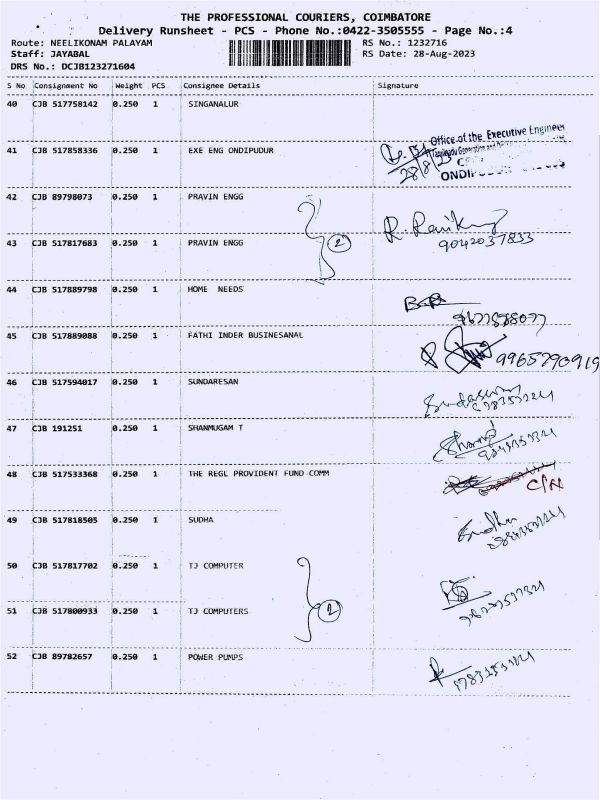 THE PROFESSIONAL COURIERS, COIMBATORE
Delivery Runsheet - PCS - Phone No.:0422-3505555 - Page No.:4
Route: NEELIKONAM PALAYAM RS No.: 1232716
Staff: JAYABAL RS Date: 28-Aug-2023
DRS No.: DCJB123271604
S No Consignment No Weight PCS Consignee Details Signature
40 CJB 517758142 0.250 1 SINGANALUR
Office of the Executive Engineer
41 CJB 517858336 0.250 1 EXE ENG ONDIPUDUR
28/8/23
42 CJB 89798073 0.250 1 PRAVIN ENGG
2
43 CJB 517817683 0.250 1 PRAVIN ENGG
9042037833
44 CJB 517889798 0.250 1 HOME NEEDS
45 CJB 517889088 0.250 1 FATHI INDER BUSINESANAL
9965790919
46 CJB 517594017 0.250 1 SUNDARESAN
47 CJB 191251 0.250 1 SHANMUGAM T
48 CJB 517533368 0.250 1 THE REGL PROVIDENT FUND COMM
49 CJB 517818505 0.250 1 SUDHA
50 CJB 517817702 0.250 1 TJ COMPUTER
51 CJB 517800933 0.250 1 TJ COMPUTERS
2
52 CJB 89782657 0.250 1 POWER PUMPS